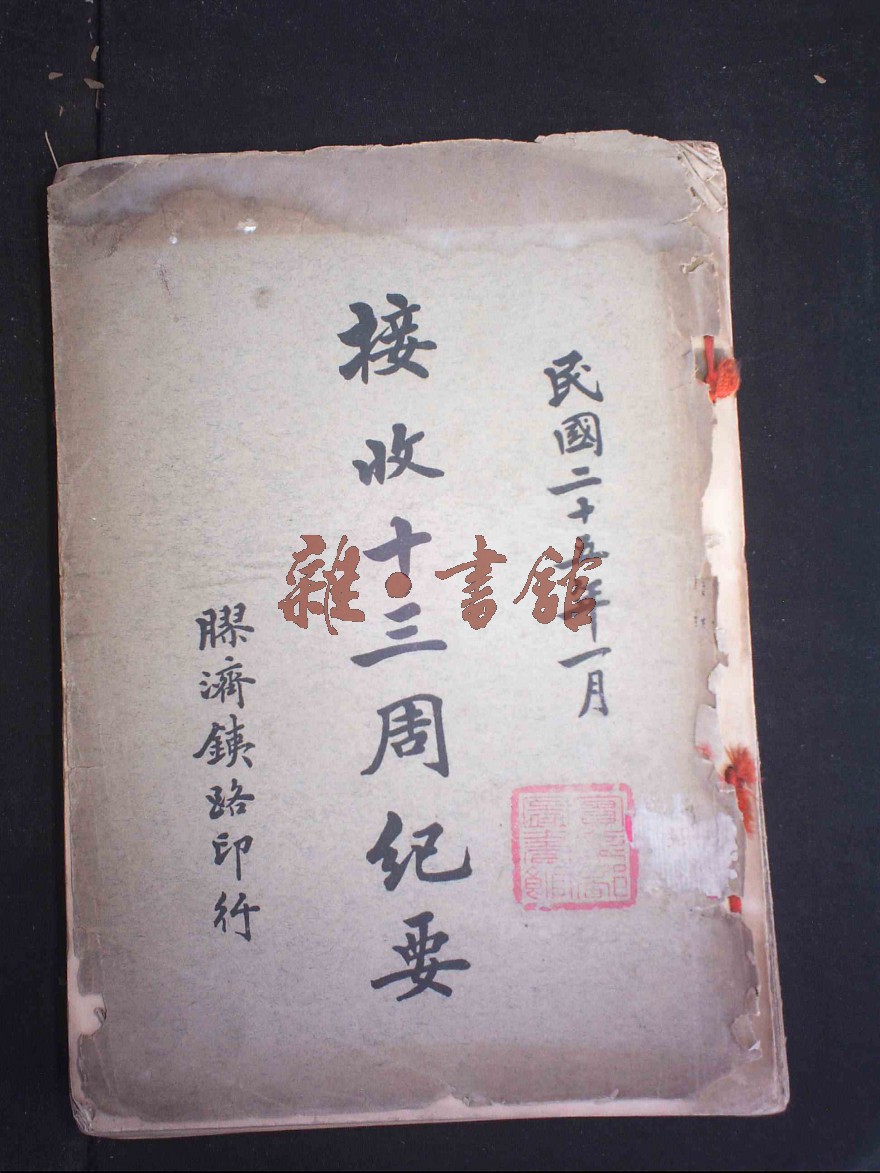 民國二十五年一月
接收十三周紀要
膠濟鐵路印行
雜·書館